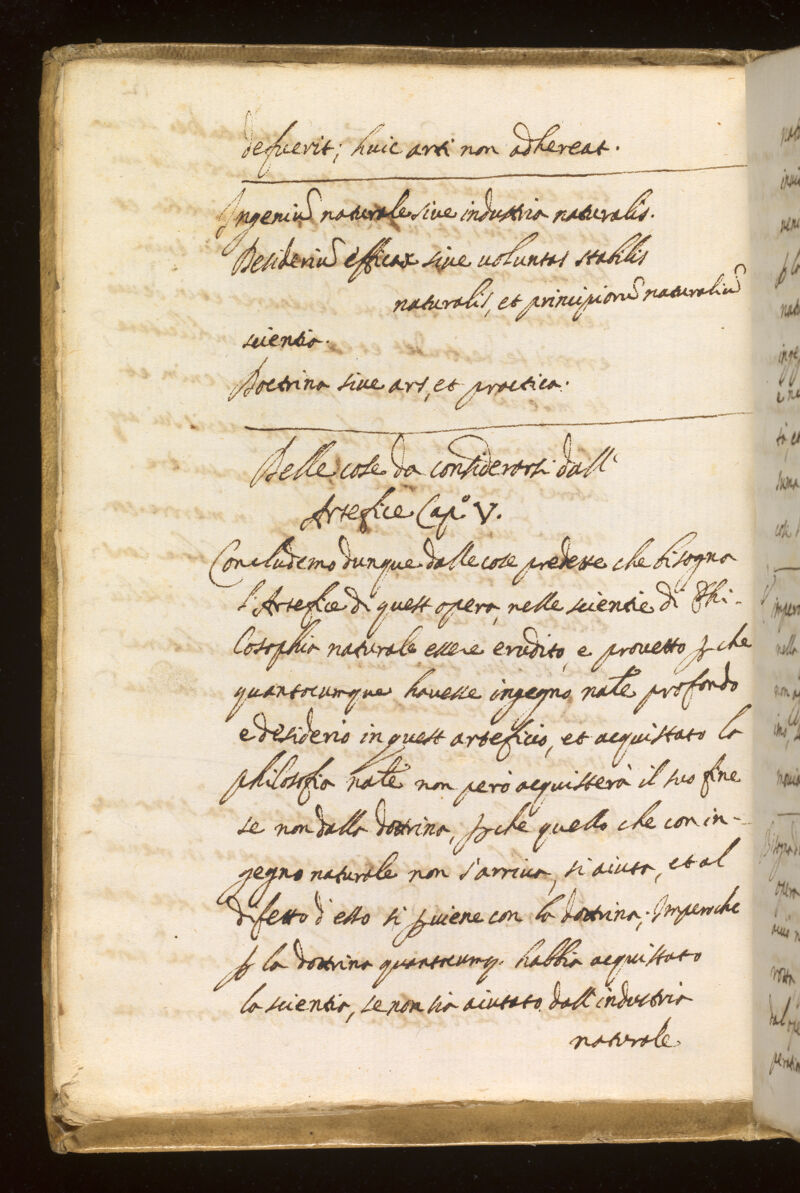 defuerit; huic arti non adhereat.
Ingeniũ naturale sive industria naturalis.
Desideriũ efficax sive voluntas stabilis
naturalis, et principiorũ naturaliũ
scientia.
Doctrina sive ars, et practica.
Delle cose da considerarsi dall'
Artefice Cap.º V.
Concludemo dunque dalle cose predette che bisogna
l'Artefice di quest opera, nelle scientie di Phi-
losophia naturale essere erudito, e provetto ꝑche
quantocumque havesse ingegno nãle profondo
e desiderio in quest arteficio, et acquistato la
philosofia nãle non però acquisterà il suo fine
se non dalla dottrina, ꝑche quello che con in-
gegno naturale non s'arriva, si aiuta, et al
difetto d'esso si ꝑviene con la dottrina; Imperoche
ꝑ la dottrina quantocumq. habbia acquistato
la scientia, se non sia aiutato dall'industria
naturale